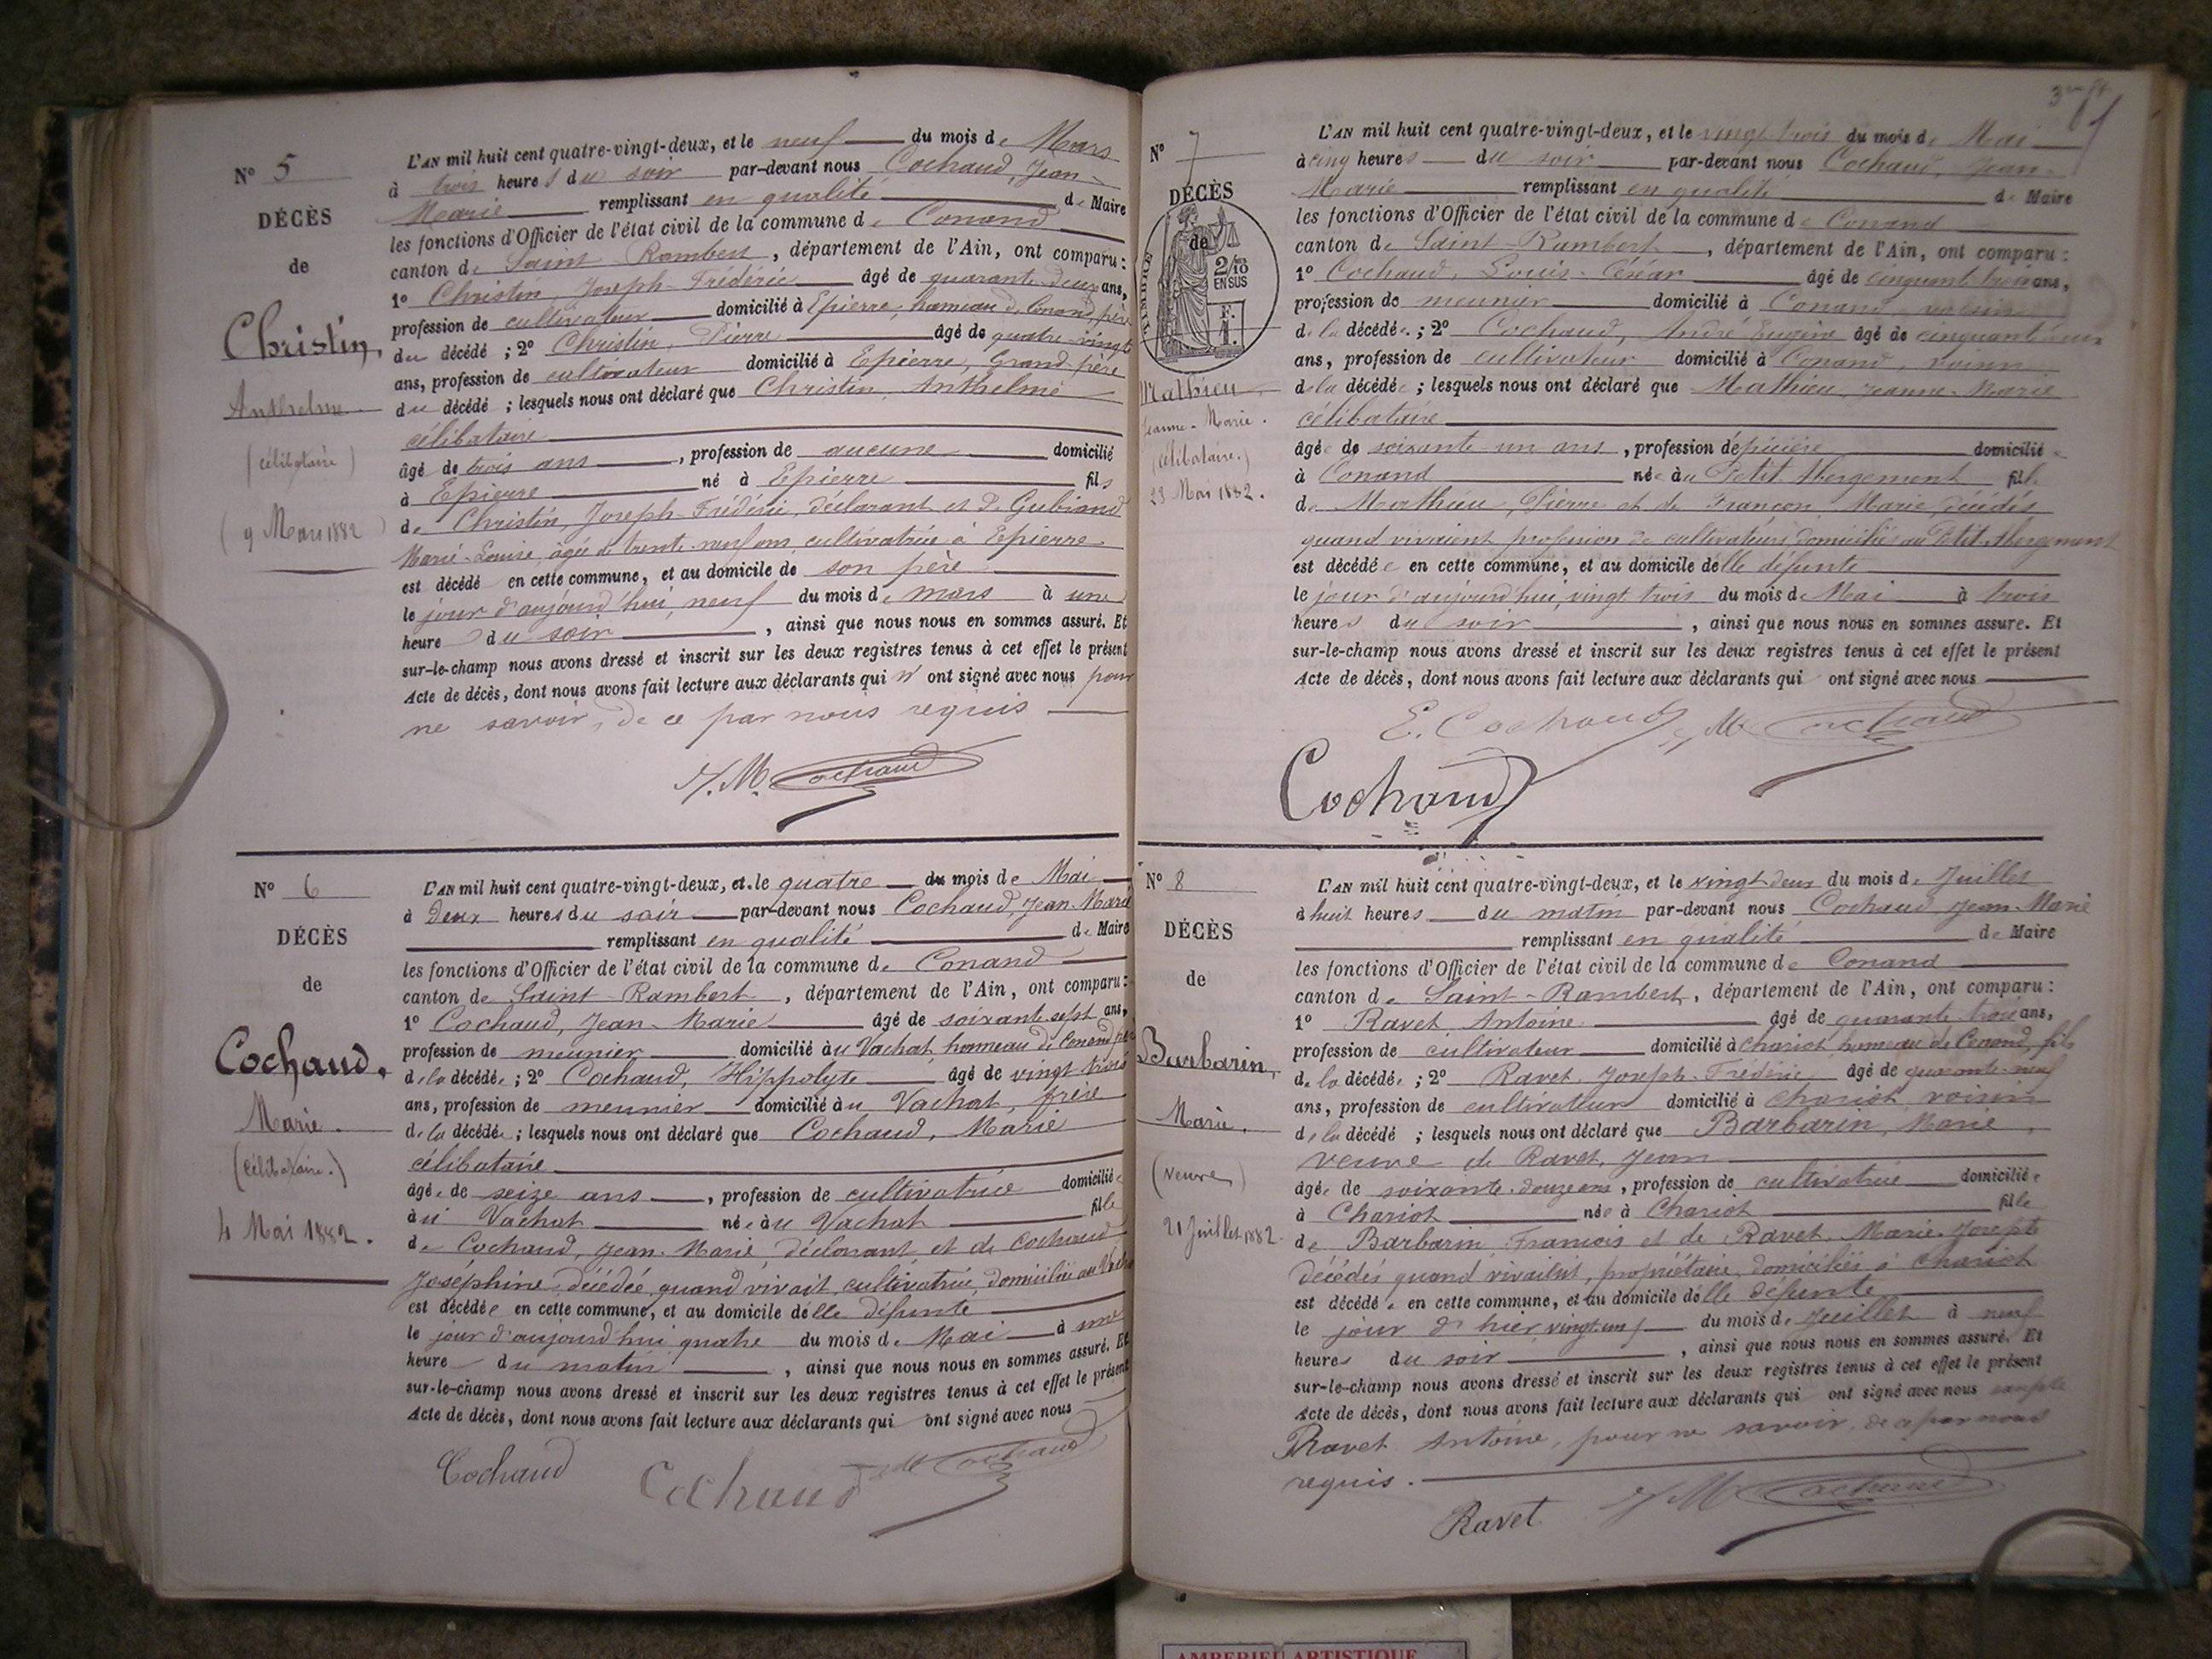 N° 5
DÉCÈS
de
Christin,
Anthelme
(célibataire)
(9 Mars 1882)
L'AN mil huit cent quatre-vingt-deux, et le neuf du mois de Mars
à trois heures du soir par-devant nous Cochaud, Jean-
Marie remplissant en qualité de Maire
les fonctions d'Officier de l'état civil de la commune de Conand
canton de Saint-Rambert, département de l'Ain, ont comparu :
1° Christin, Joseph-Frédéric âgé de quarante-deux ans,
profession de cultivateur domicilié à Epierre, hameau de Conand, père
du décédé ; 2° Christin, Pierre âgé de quatre-vingt
ans, profession de cultivateur domicilié à Epierre, Grand-père
du décédé ; lesquels nous ont déclaré que Christin, Anthelme
célibataire
âgé de trois ans, profession de aucune domicilié
à Epierre né à Epierre fils
de Christin, Joseph-Frédéric, déclarant et de Gubiand
Marie-Louise, âgée de trente-neuf ans, cultivatrice à Epierre
est décédé en cette commune, et au domicile de son père
le jour d'aujourd'hui, neuf du mois de mars à une
heure du soir, ainsi que nous nous en sommes assuré. Et
sur-le-champ nous avons dressé et inscrit sur les deux registres tenus à cet effet le présent
Acte de décès, dont nous avons fait lecture aux déclarants qui n'ont signé avec nous pour
ne savoir, de ce par nous requis
J. M. Cochaud
N° 6
DÉCÈS
de
Cochaud,
Marie.
(célibataire.)
4 Mai 1882.
L'AN mil huit cent quatre-vingt-deux, et le quatre du mois de Mai
à deux heures du soir par-devant nous Cochaud, Jean-Marie
remplissant en qualité de Maire
les fonctions d'Officier de l'état civil de la commune de Conand
canton de Saint-Rambert, département de l'Ain, ont comparu :
1° Cochaud, Jean-Marie âgé de soixante-sept ans,
profession de meunier domicilié au Vachat, hameau de Conand père
de la décédée ; 2° Cochaud, Hippolyte âgé de vingt trois
ans, profession de meunier domicilié au Vachat, frère
de la décédée ; lesquels nous ont déclaré que Cochaud, Marie
célibataire
âgée de seize ans, profession de cultivatrice domiciliée
au Vachat née au Vachat fille
de Cochaud, Jean-Marie déclarant et de Cochaud
Joséphine, décédée, quand vivait, cultivatrice, domiciliée au Vachat
est décédée en cette commune, et au domicile de elle défunte
le jour d'aujourd'hui quatre du mois de Mai à une
heure du matin, ainsi que nous nous en sommes assuré. Et
sur-le-champ nous avons dressé et inscrit sur les deux registres tenus à cet effet le présent
Acte de décès, dont nous avons fait lecture aux déclarants qui ont signé avec nous
Cochaud Cochaud Cochaud
3
N° 7
DÉCÈS
de
TIMBRE
2/10
EN SUS
F.
1.
Mathieu
Jeanne-Marie.
(célibataire.)
23 Mai 1882.
L'AN mil huit cent quatre-vingt-deux, et le vingt trois du mois de Mai
à cinq heures du soir par-devant nous Cochaud, Jean-
Marie remplissant en qualité de Maire
les fonctions d'Officier de l'état civil de la commune de Conand
canton de Saint-Rambert, département de l'Ain, ont comparu :
1° Cochaud, Louis-César âgé de cinquante trois ans,
profession de meunier domicilié à Conand, voisin
de la décédée ; 2° Cochaud, André Eugène âgé de cinquante
ans, profession de cultivateur domicilié à Conand, voisin
de la décédée ; lesquels nous ont déclaré que Mathieu, Jeanne-Marie
célibataire
âgée de soixante un ans, profession d'épicière domiciliée
à Conand née au Petit Abergement fille
de Mathieu, Pierre et de Françon, Marie, décédés
quand vivaient profession de cultivateurs domiciliés au Petit-Abergement
est décédée en cette commune, et au domicile de elle défunte
le jour d'aujourd'hui, vingt trois du mois de Mai à trois
heures du soir, ainsi que nous nous en sommes assuré. Et
sur-le-champ nous avons dressé et inscrit sur les deux registres tenus à cet effet le présent
Acte de décès, dont nous avons fait lecture aux déclarants qui ont signé avec nous
E. Cochaud J. M. Cochaud
Cochaud
N° 8
DÉCÈS
de
Barbarin,
Marie.
(veuve)
21 Juillet 1882.
L'AN mil huit cent quatre-vingt-deux, et le vingt deux du mois de Juillet
à huit heures du matin par-devant nous Cochaud, Jean-Marie
remplissant en qualité de Maire
les fonctions d'Officier de l'état civil de la commune de Conand
canton de Saint-Rambert, département de l'Ain, ont comparu :
1° Ravet Antoine âgé de quarante-trois ans,
profession de cultivateur domicilié à Chariot, hameau de Conand, fils
de la décédée ; 2° Ravet, Joseph-Frédéric âgé de quarante-neuf
ans, profession de cultivateur domicilié à Chariot, voisin
de la décédé ; lesquels nous ont déclaré que Barbarin, Marie,
veuve de Ravet, Jean
âgée de soixante-douze ans, profession de cultivatrice domiciliée
à Chariot née à Chariot fille
de Barbarin François et de Ravet, Marie-Josepte
décédés quand vivaient, propriétaire, domiciliés à Chariot
est décédée en cette commune, et au domicile de elle défunte
le jour d'hier, vingt-un du mois de Juillet à neuf
heures du soir, ainsi que nous nous en sommes assuré. Et
sur-le-champ nous avons dressé et inscrit sur les deux registres tenus à cet effet le présent
Acte de décès, dont nous avons fait lecture aux déclarants qui ont signé avec nous excepté
Ravet Antoine, pour ne savoir, de ce par nous
requis.
Ravet J M Cochaud
AMBERIEU ARTISTIQUE